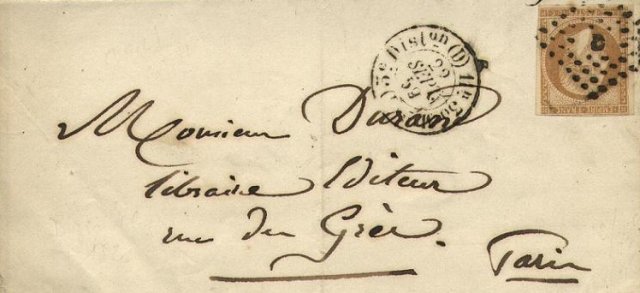 3e Diston (D) 11e 30
22
SEPT
59
Monsieur Durand
libraire Editeur
rue du Grès.
Paris